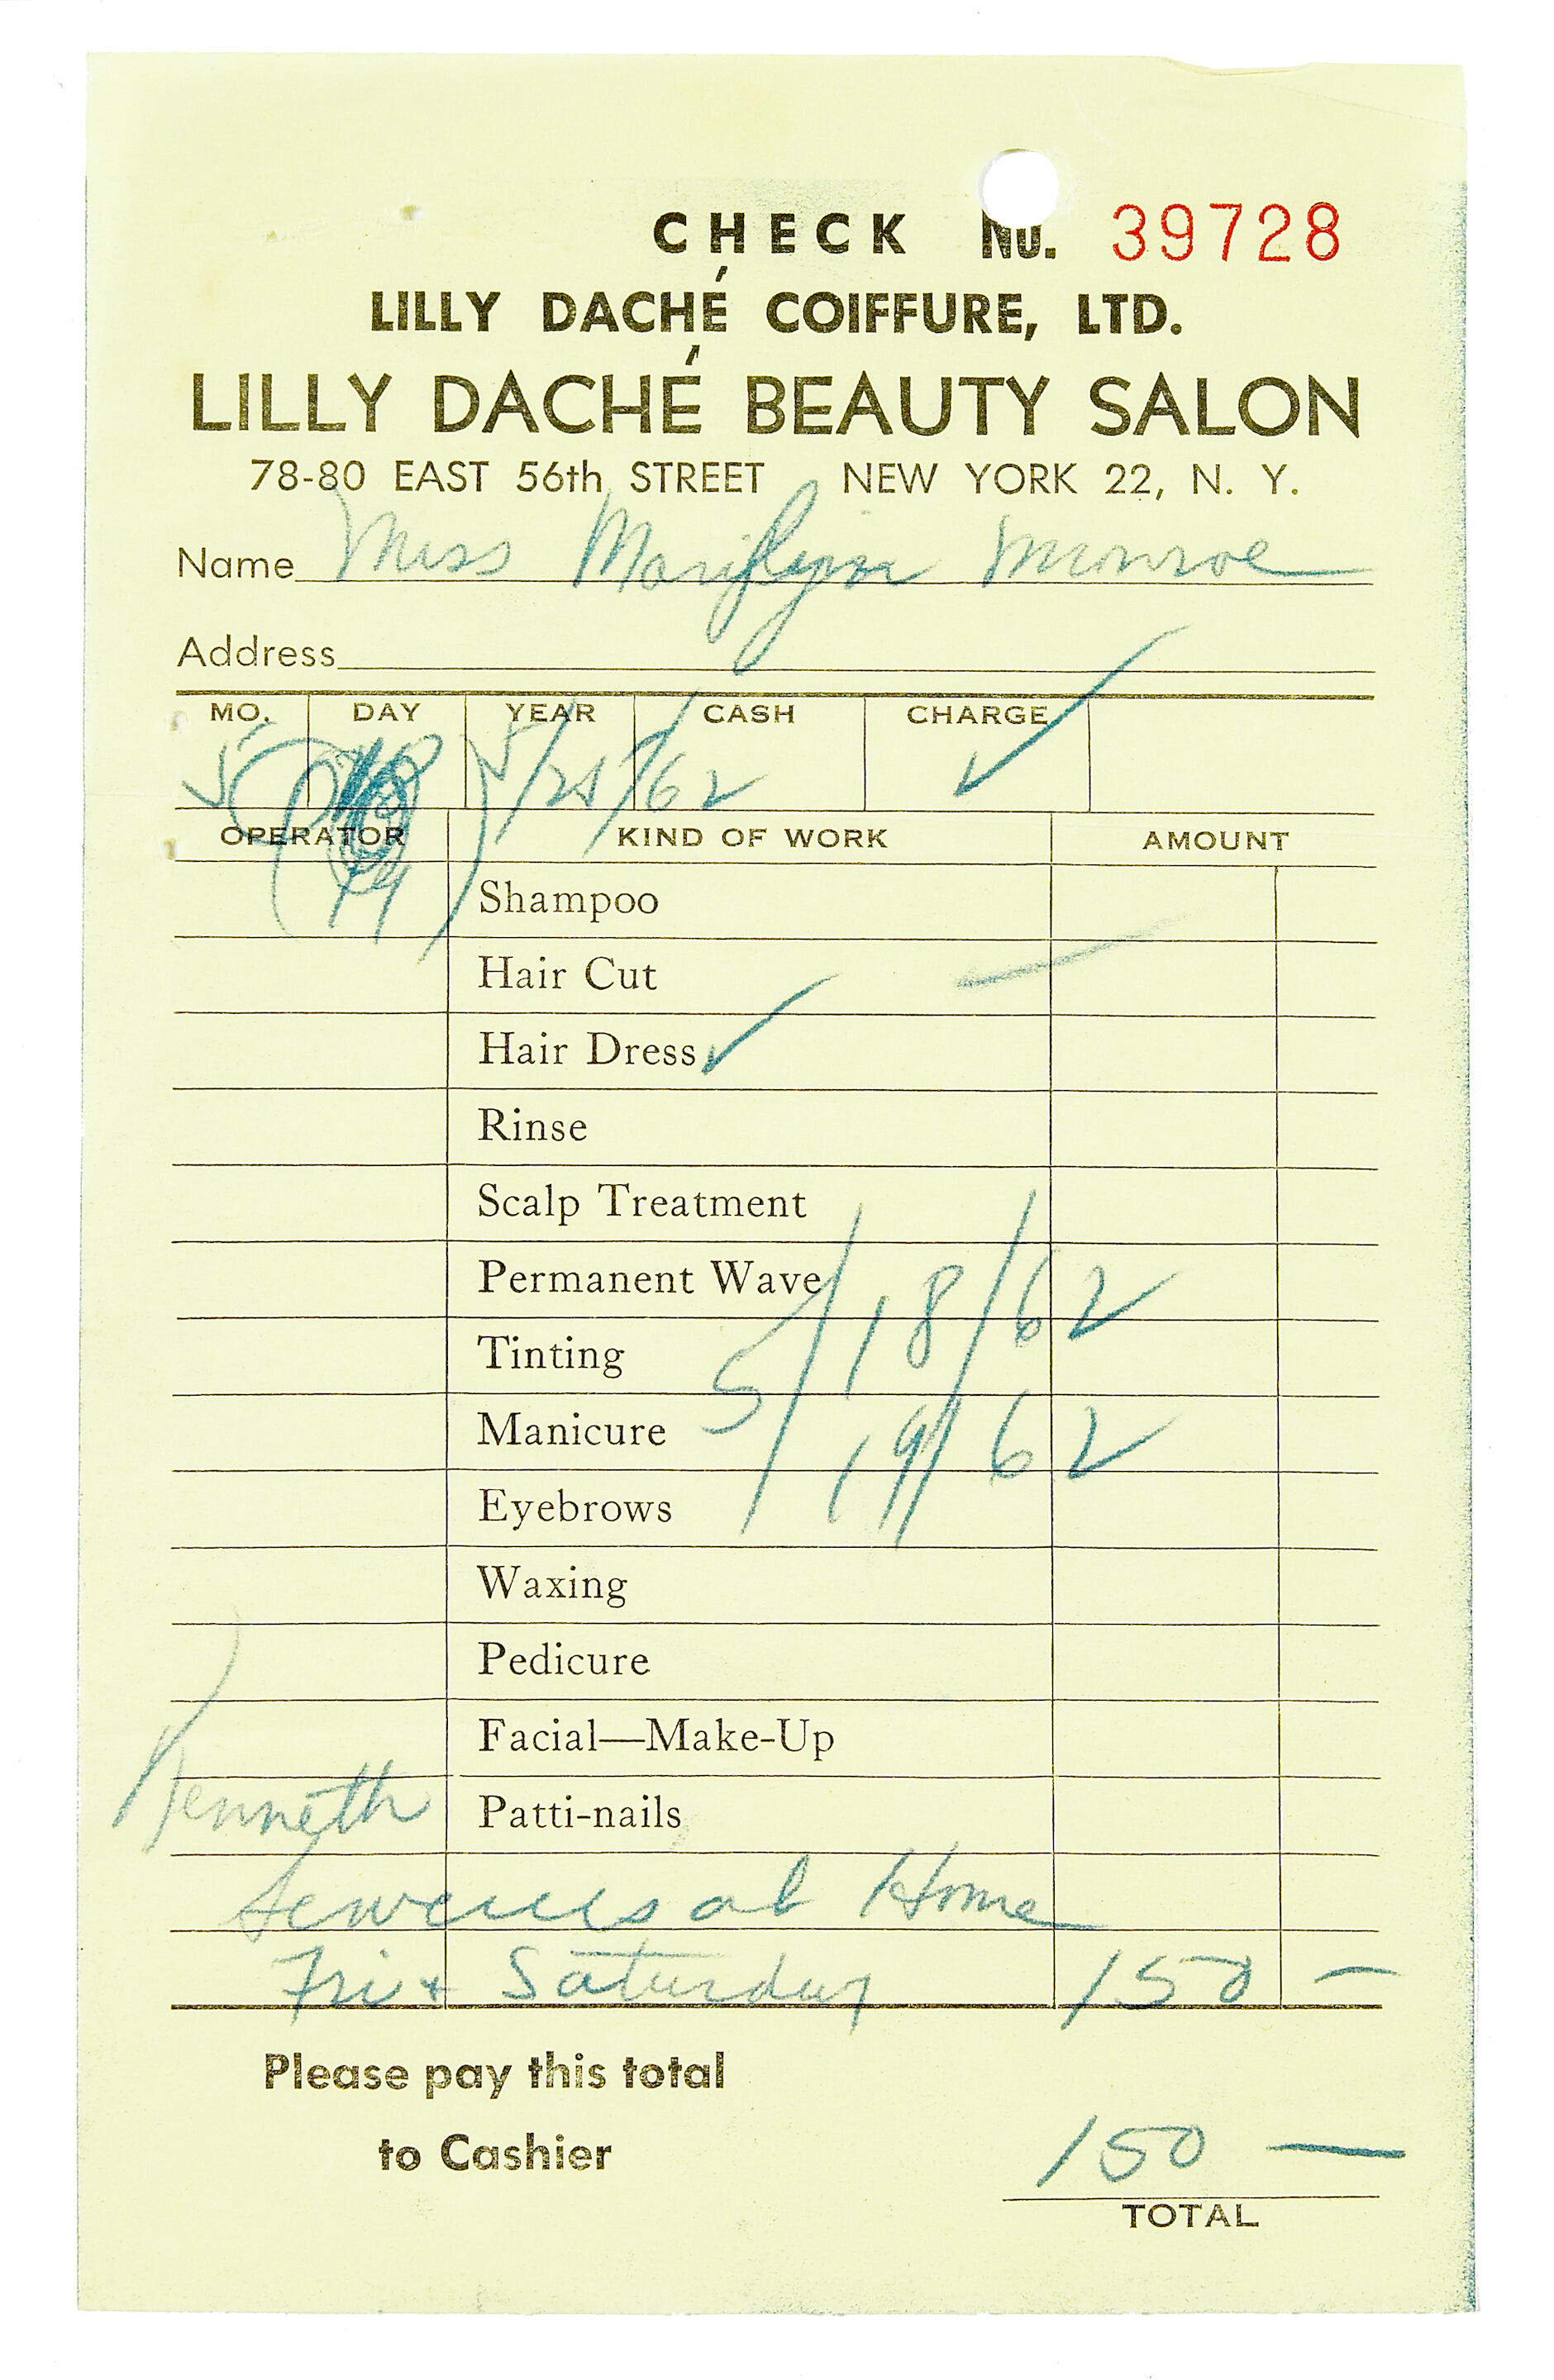 CHECK No. 39728
LILLY DACHÉ COIFFURE, LTD.
LILLY DACHÉ BEAUTY SALON
78-80 EAST 56th STREET NEW YORK 22, N. Y.
Name Miss Marilyn Monroe
Address
MO. DAY YEAR CASH CHARGE
5/21/62 ✓
OPERATOR KIND OF WORK AMOUNT
Shampoo
Hair Cut
Hair Dress ✓
Rinse
Scalp Treatment
Permanent Wave
5/18/62
Tinting
Manicure
19/62
Eyebrows
Waxing
Pedicure
Facial—Make-Up
Kenneth Patti-nails
at Home
Fri + Saturday 150 —
Please pay this total
to Cashier
150 —
TOTAL